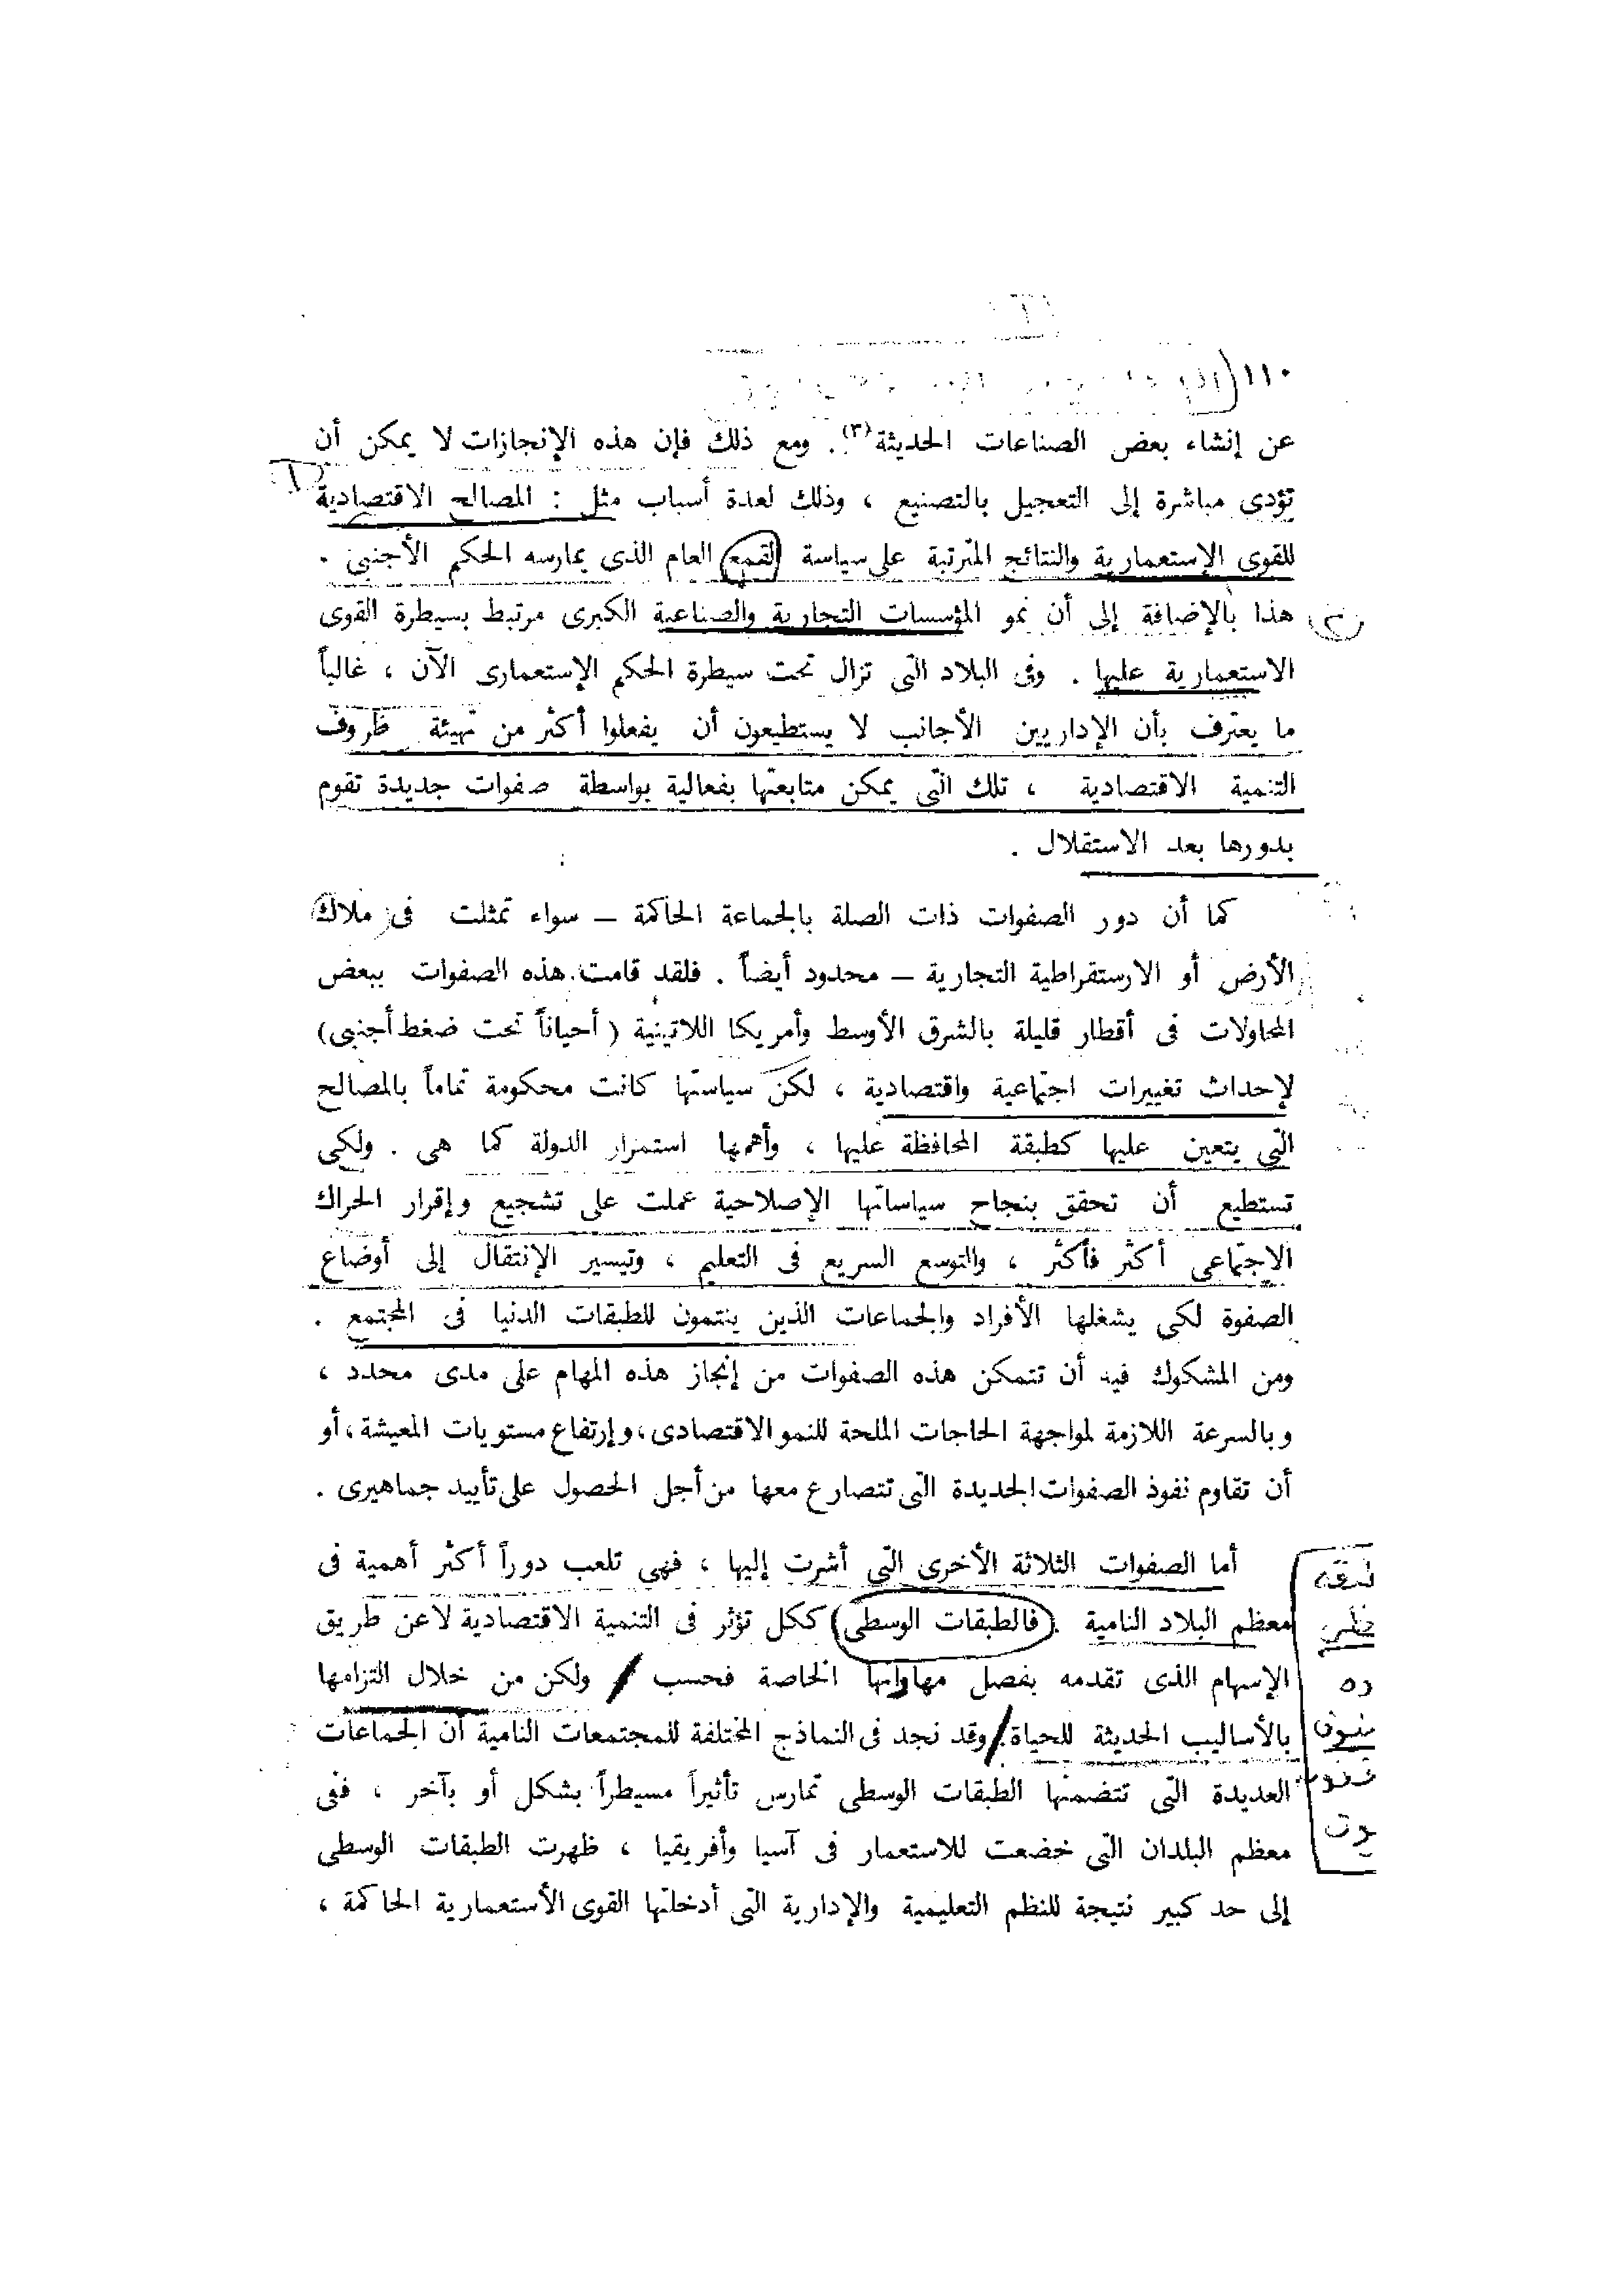 ١١٠
عن إنشاء بعض الصناعات الحديثة(٣). ومع ذلك فإن هذه الإنجازات لا يمكن أن
تؤدى مباشرة إلى التعجيل بالتصنيع ، وذلك لعدة أسباب مثل : المصالح الاقتصادية
للقوى الإستعمارية والنتائج المترتبة على سياسة القمع العام الذى يمارسه الحكم الأجنبى .
هذا بالإضافة إلى أن نمو المؤسسات التجارية والصناعية الكبرى مرتبط بسيطرة القوى
الاستعمارية عليها . وفى البلاد التى تزال تحت سيطرة الحكم الإستعمارى الآن ، غالباً
ما يعترف بأن الإداريين الأجانب لا يستطيعون أن يفعلوا أكثر من تهيئة ظروف
التنمية الاقتصادية ، تلك التى يمكن متابعتها بفعالية بواسطة صفوات جديدة تقوم
بدورها بعد الاستقلال .
كما أن دور الصفوات ذات الصلة بالجماعة الحاكمة – سواء تمثلت فى ملاك
الأرض أو الارستقراطية التجارية – محدود أيضاً . فلقد قامت هذه الصفوات ببعض
المحاولات فى أقطار قليلة بالشرق الأوسط وأمريكا اللاتينية ( أحياناً تحت ضغط أجنبى)
لإحداث تغييرات اجتماعية واقتصادية ، لكن سياستها كانت محكومة تماماً بالمصالح
التى يتعين عليها كطبقة المحافظة عليها ، وأهمها استمرار الدولة كما هى . ولكى
تستطيع أن تحقق بنجاح سياساتها الإصلاحية عملت على تشجيع وإقرار الحراك
الاجتماعى أكثر فأكثر ، والتوسع السريع فى التعليم ، وتيسير الإنتقال إلى أوضاع
الصفوة لكى يشغلها الأفراد والجماعات الذين ينتمون للطبقات الدنيا فى المجتمع .
ومن المشكوك فيه أن تتمكن هذه الصفوات من إنجاز هذه المهام على مدى محدد ،
وبالسرعة اللازمة لمواجهة الحاجات الملحة للنمو الاقتصادى ، وإرتفاع مستويات المعيشة ، أو
أن تقاوم نفوذ الصفوات الجديدة التى تتصارع معها من أجل الحصول على تأييد جماهيرى .
أما الصفوات الثلاثة الأخرى التى أشرت إليها ، فهى تلعب دوراً أكثر أهمية فى
معظم البلاد النامية . فالطبقات الوسطى ككل تؤثر فى التنمية الاقتصادية لا عن طريق
الإسهام الذى تقدمه بفصل مهاراتها الخاصة فحسب ولكن من خلال التزامها
بالأساليب الحديثة للحياة. وقد نجد فى النماذج المختلفة للمجتمعات النامية أن الجماعات
العديدة التى تتضمنها الطبقات الوسطى تمارس تأثيراً مسيطراً بشكل أو بآخر ، ففى
معظم البلدان التى خضعت للاستعمار فى آسيا وأفريقيا ، ظهرت الطبقات الوسطى
إلى حد كبير نتيجة للنظم التعليمية والإدارية التى أدخلتها القوى الأستعمارية الحاكمة ،